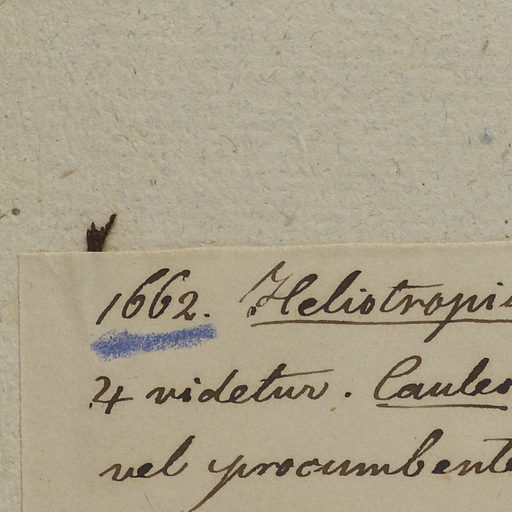 1662. Heliotropi
♃ videtur. Caules
vel procumbente